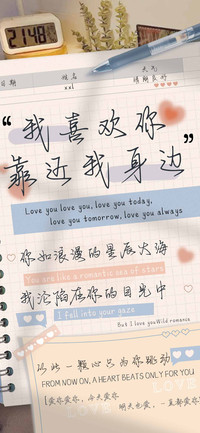 21:48
日期 姓名 天气
xxl
“我喜欢你
靠近我身边”
Love you love you, love you today,
love you tomorrow, love you always
你如浪漫的星辰大海
You are like a romantic sea of stars
我沦陷在你的目光中
I fell into your gaze
But I love youWild romance
以此一颗心只为你跳动
FROM NOW ON, A HEART BEATS ONLY FOR YOU
LOVE